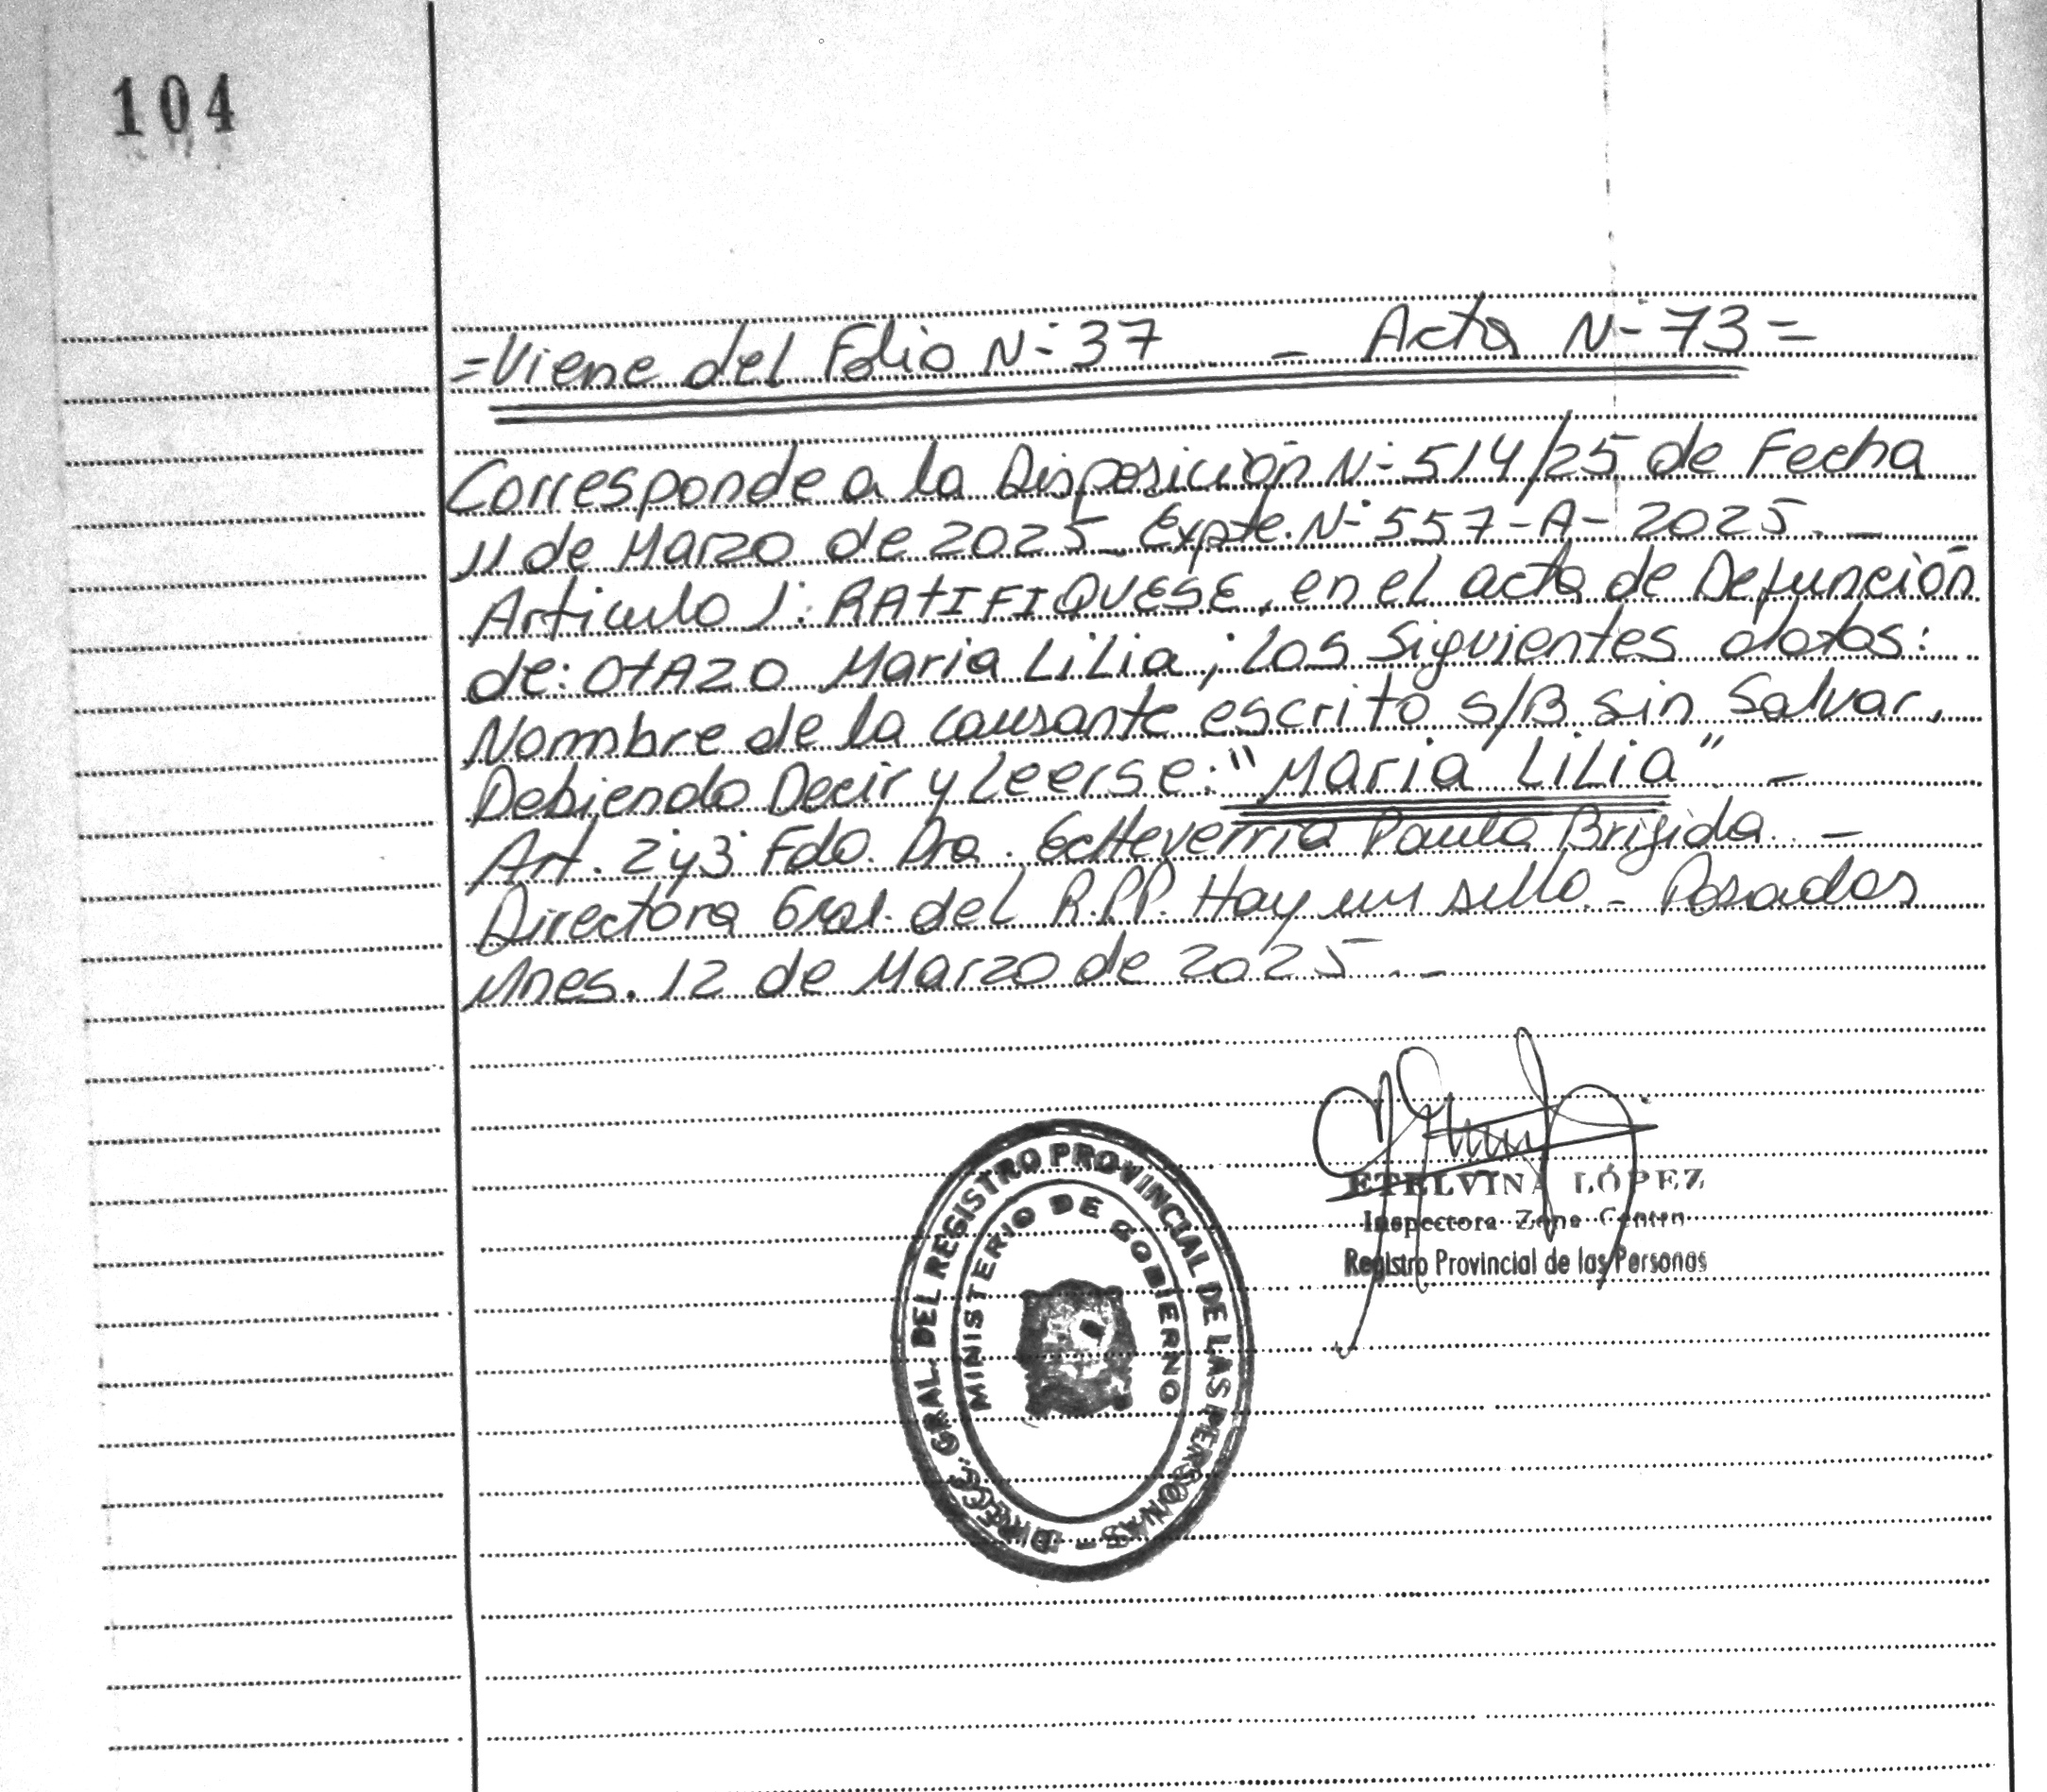 104
=Viene del Folio N-37 - Acta N-73=
Corresponde a la Disposición N-514/25 de Fecha
11 de Marzo de 2025_ Expte. N-557-A-2025._
Articulo 1: RATIFIQUESE, en el acta de Defunción
de: OTAZO Maria LiLia; Los Siguientes datos:
Nombre de la causante escrito S/B sin Salvar,
Debiendo Decir y Leerse: "Maria LiLia" -
Art. 2 y 3 Fdo. Dra. Echeverria Paula Brigida. -
Directora Gral. del R.P.P. Hay un sello. - Posadas
Mnes. 12 de Marzo de 2025. -
ETELVINA LÓPEZ
Inspectora Zona Centro
Registro Provincial de las Personas
DIREC. GRAL. DEL REGISTRO PROVINCIAL DE LAS PERSONAS -
MINISTERIO DE GOBIERNO